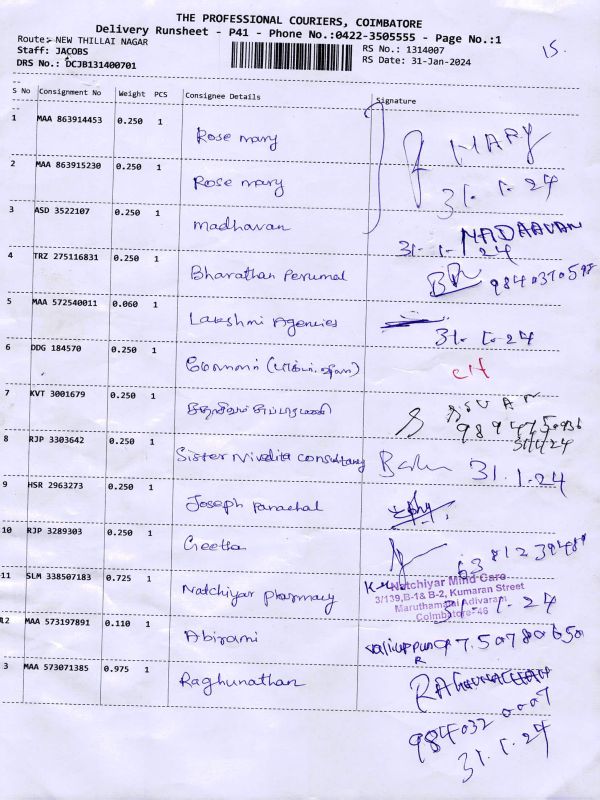 THE PROFESSIONAL COURIERS, COIMBATORE
Delivery Runsheet - P41 - Phone No.:0422-3505555 - Page No.:1
Route:- NEW THILLAI NAGAR
Staff: JACOBS
DRS No.: DCJB131400701
RS No.: 1314007
RS Date: 31-Jan-2024
15.
S No Consignment No Weight PCS Consignee Details Signature
1 MAA 863914453 0.250 1 Rose mary MARY
2 MAA 863915230 0.250 1 Rose mary 31.1.24
3 ASD 3522107 0.250 1 madhavan MADAAVAN
31.1.24
4 TRZ 275116831 0.250 1 Bharathan Perumal
5 MAA 572540011 0.060 1 Lakshmi Agencies 31.1.24
6 DDG 184570 0.250 1
7 KVT 3001679 0.250 1
31/1/24
8 RJP 3303642 0.250 1 Sister Nivedita consultancy 31.1.24
9 HSR 2963273 0.250 1 Joseph
10 RJP 3289303 0.250 1 Geetha
11 SLM 338507183 0.725 1 Natchiyar pharmacy
Natchiyar Mind Care
3/139,B-1& B-2, Kumaran Street
Maruthamalai Adivaram
Coimbatore-46
31.1.24
12 MAA 573197891 0.110 1 Abirami
3 MAA 573071385 0.975 1 Raghunathan
984032 0007
31.1.24